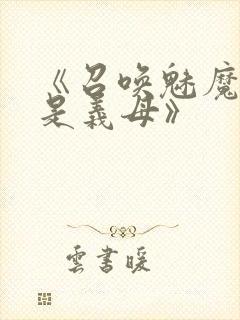 《召唤魅魔
是義母》
雲書暖